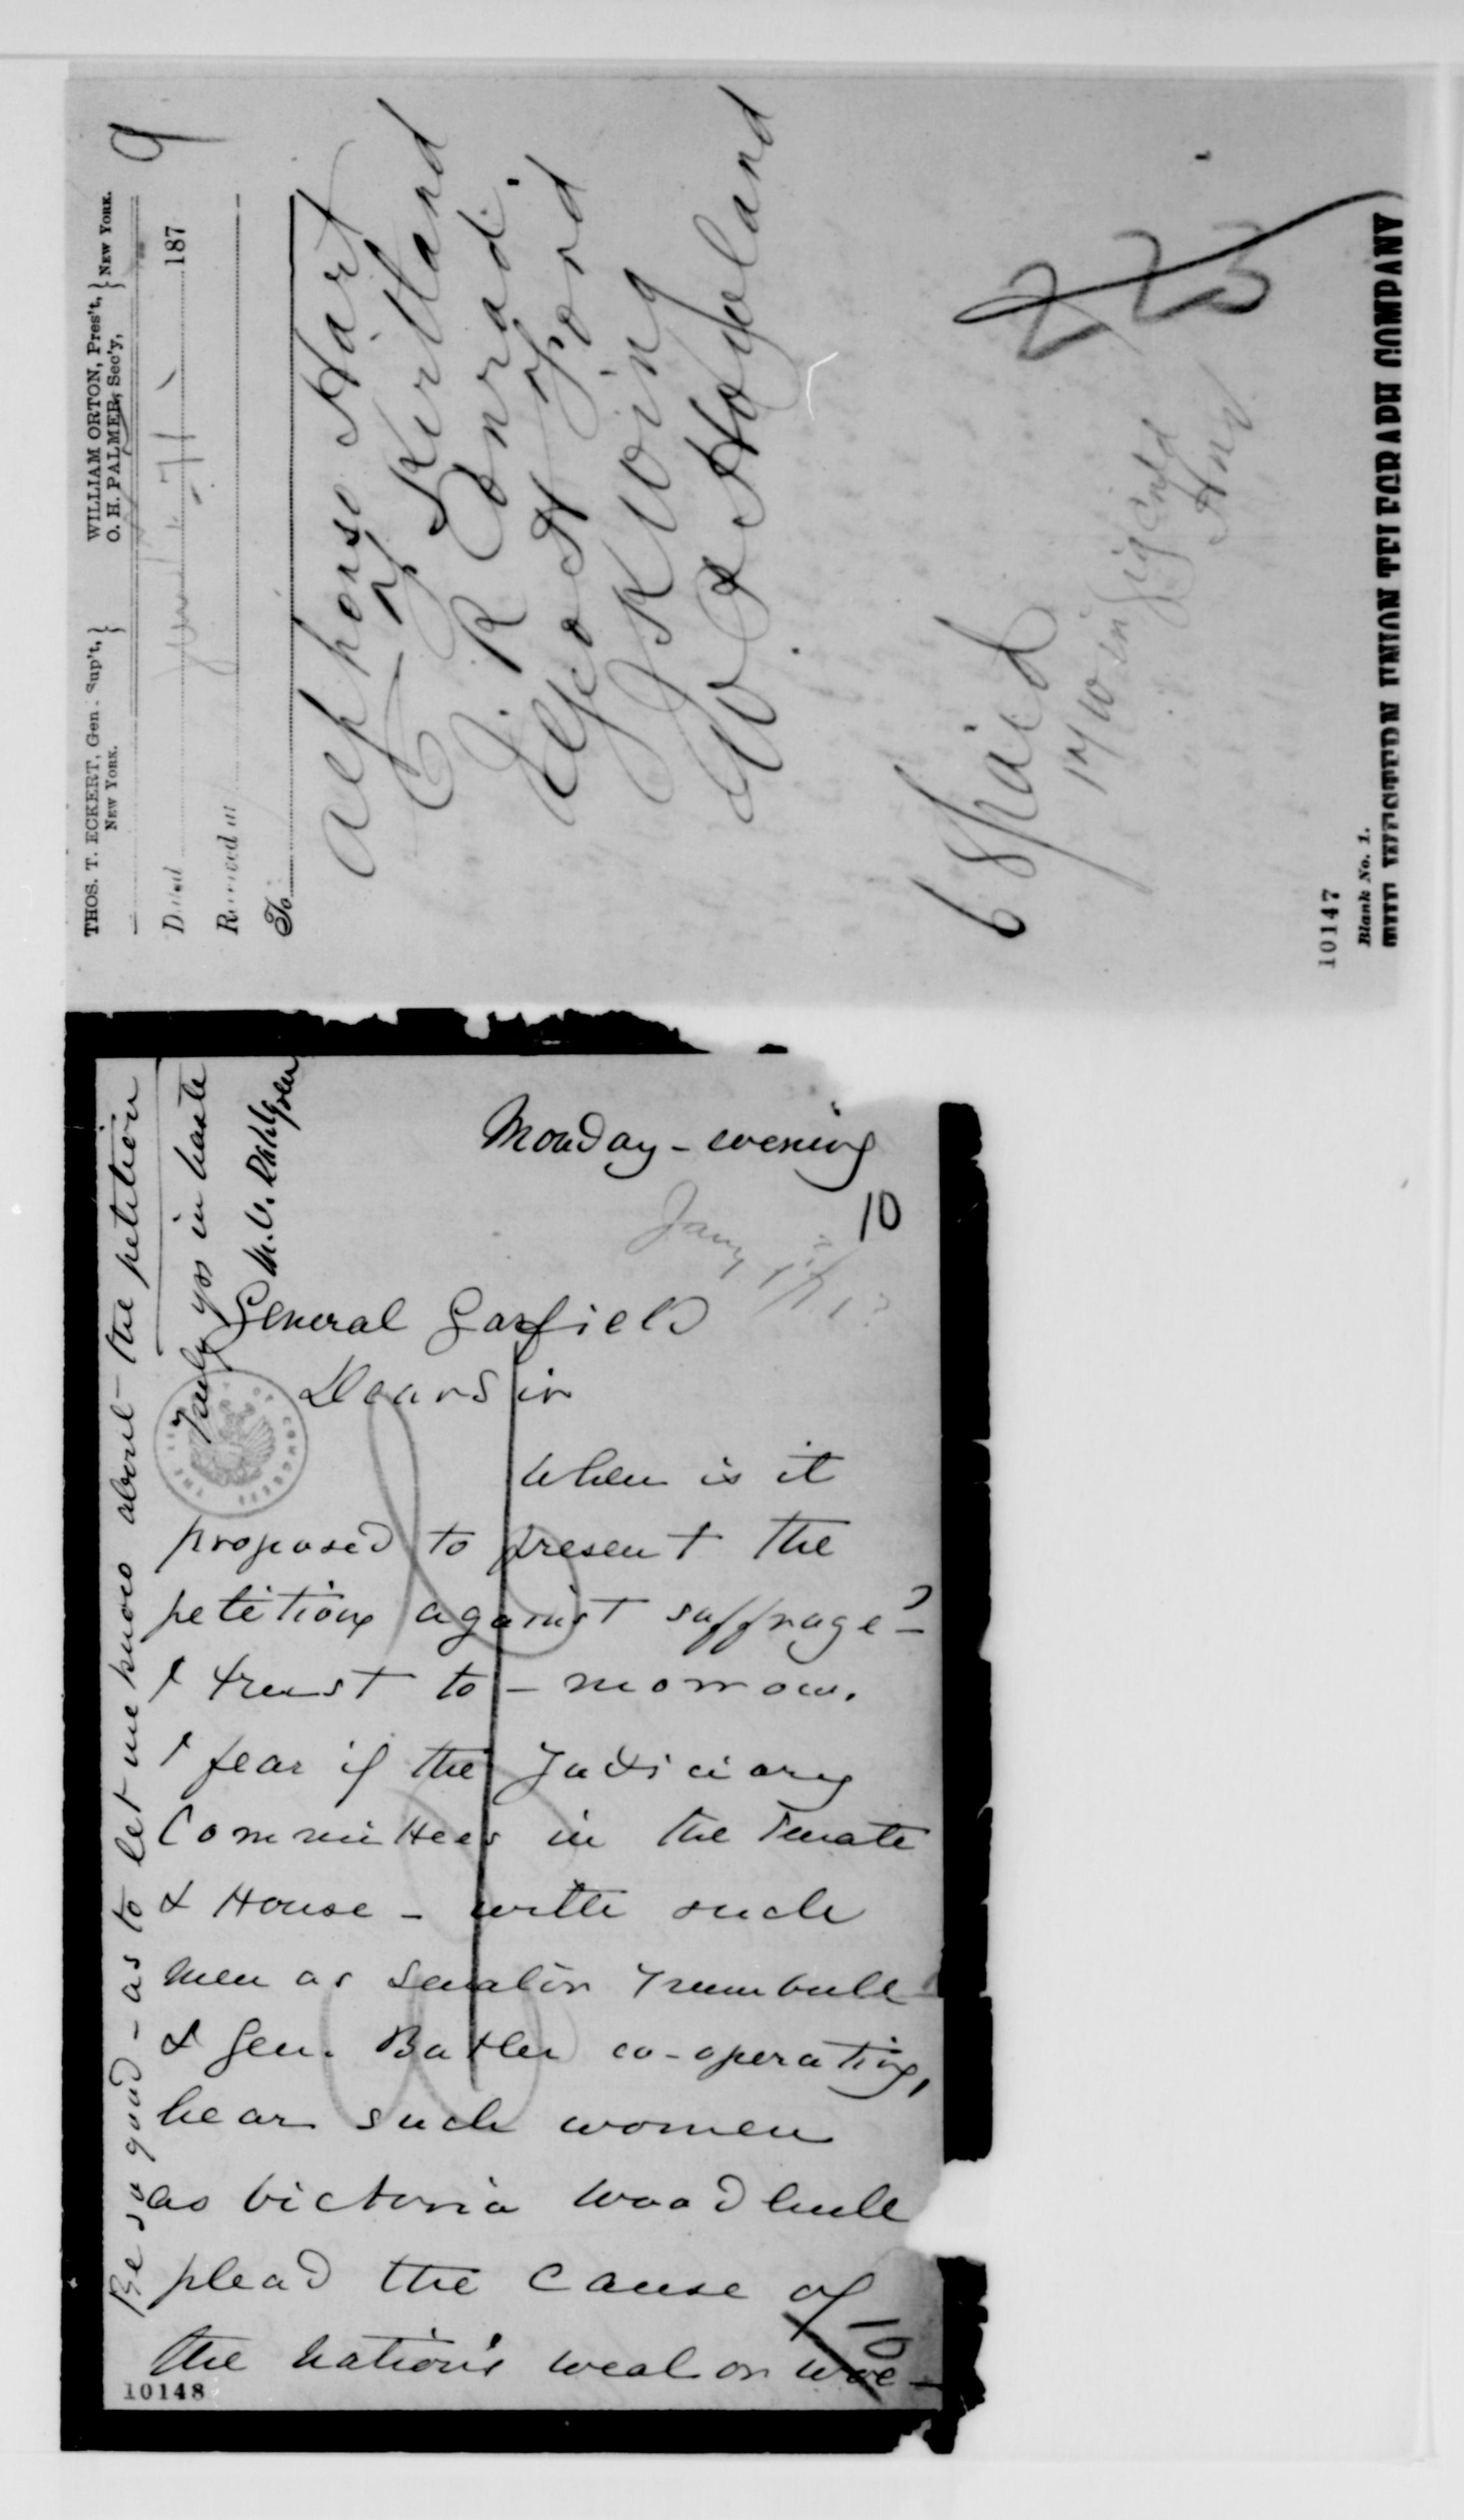 Blank No. 1.
THE WESTERN UNION TELEGRAPH COMPANY
THOS. T. ECKERT, Gen. Sup't, } NEW YORK.
WILLIAM ORTON, Pres't, } NEW YORK.
O. H. PALMER, Sec'y,
9
Dated 187
Received at
To
Alphonso Hart
C N Kirtland
J. R Conrad.
Elyo H
J K Wing
W C Howeland
68 paid
10147
Monday - evening
10
Jany
General Garfield
Dear Sir
When is it
proposed to present the
petitions against suffrage?
I trust to - morrow.
I fear if the Judiciary
Committees in the Senate
& House - with such
men as Senator Trumbull
& Gen. Butler co-operating,
hear such women
as Victoria Woodhull
plead the cause of
the nation's weal or woe -
10
Be so good - as to let me know about the petition
Truly yrs in haste
M. V. Dahlgren
10148